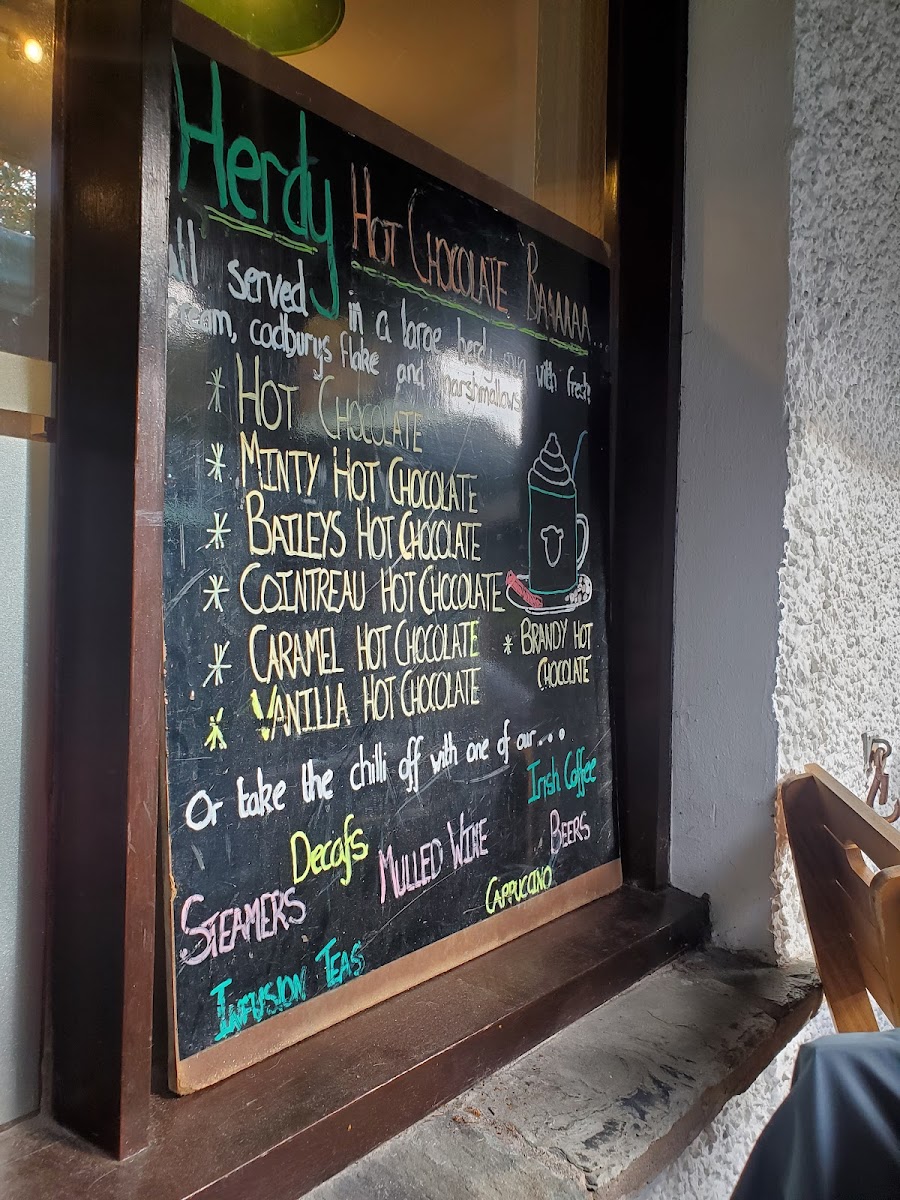 Herdy HOT CHOCOLATE BAAAAAA...
All served in a large herdy mug with fresh
cream, cadburys flake and marshmallows
* HOT CHOCOLATE
* MINTY HOT CHOCOLATE
* BAILEYS HOT CHOCOLATE
* COINTREAU HOT CHOCOLATE
* CARAMEL HOT CHOCOLATE
* VANILLA HOT CHOCOLATE
* BRANDY HOT
CHOCOLATE
Or take the chilli off with one of our...
Irish Coffee
Decafs
MULLED WINE
BEERS
STEAMERS
CAPPUCCINO
INFUSION TEAS